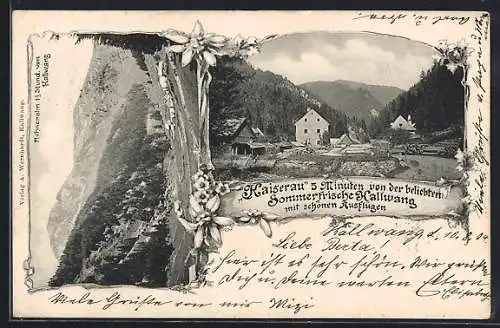 Verlag A. Wernhardt, Kallwang.
Achneralm 1½ Stund. von
Kallwang
"Kaiserau" 5 Minuten von der beliebten
Sommerfrische Kallwang
mit schönen Ausflügen
Kallwang d. 10. 04
Liebe Berta!
hier ist es sehr schön. Wir grüßen
Dich u. Deine werten Eltern
Viele Grüße von mir Mizi